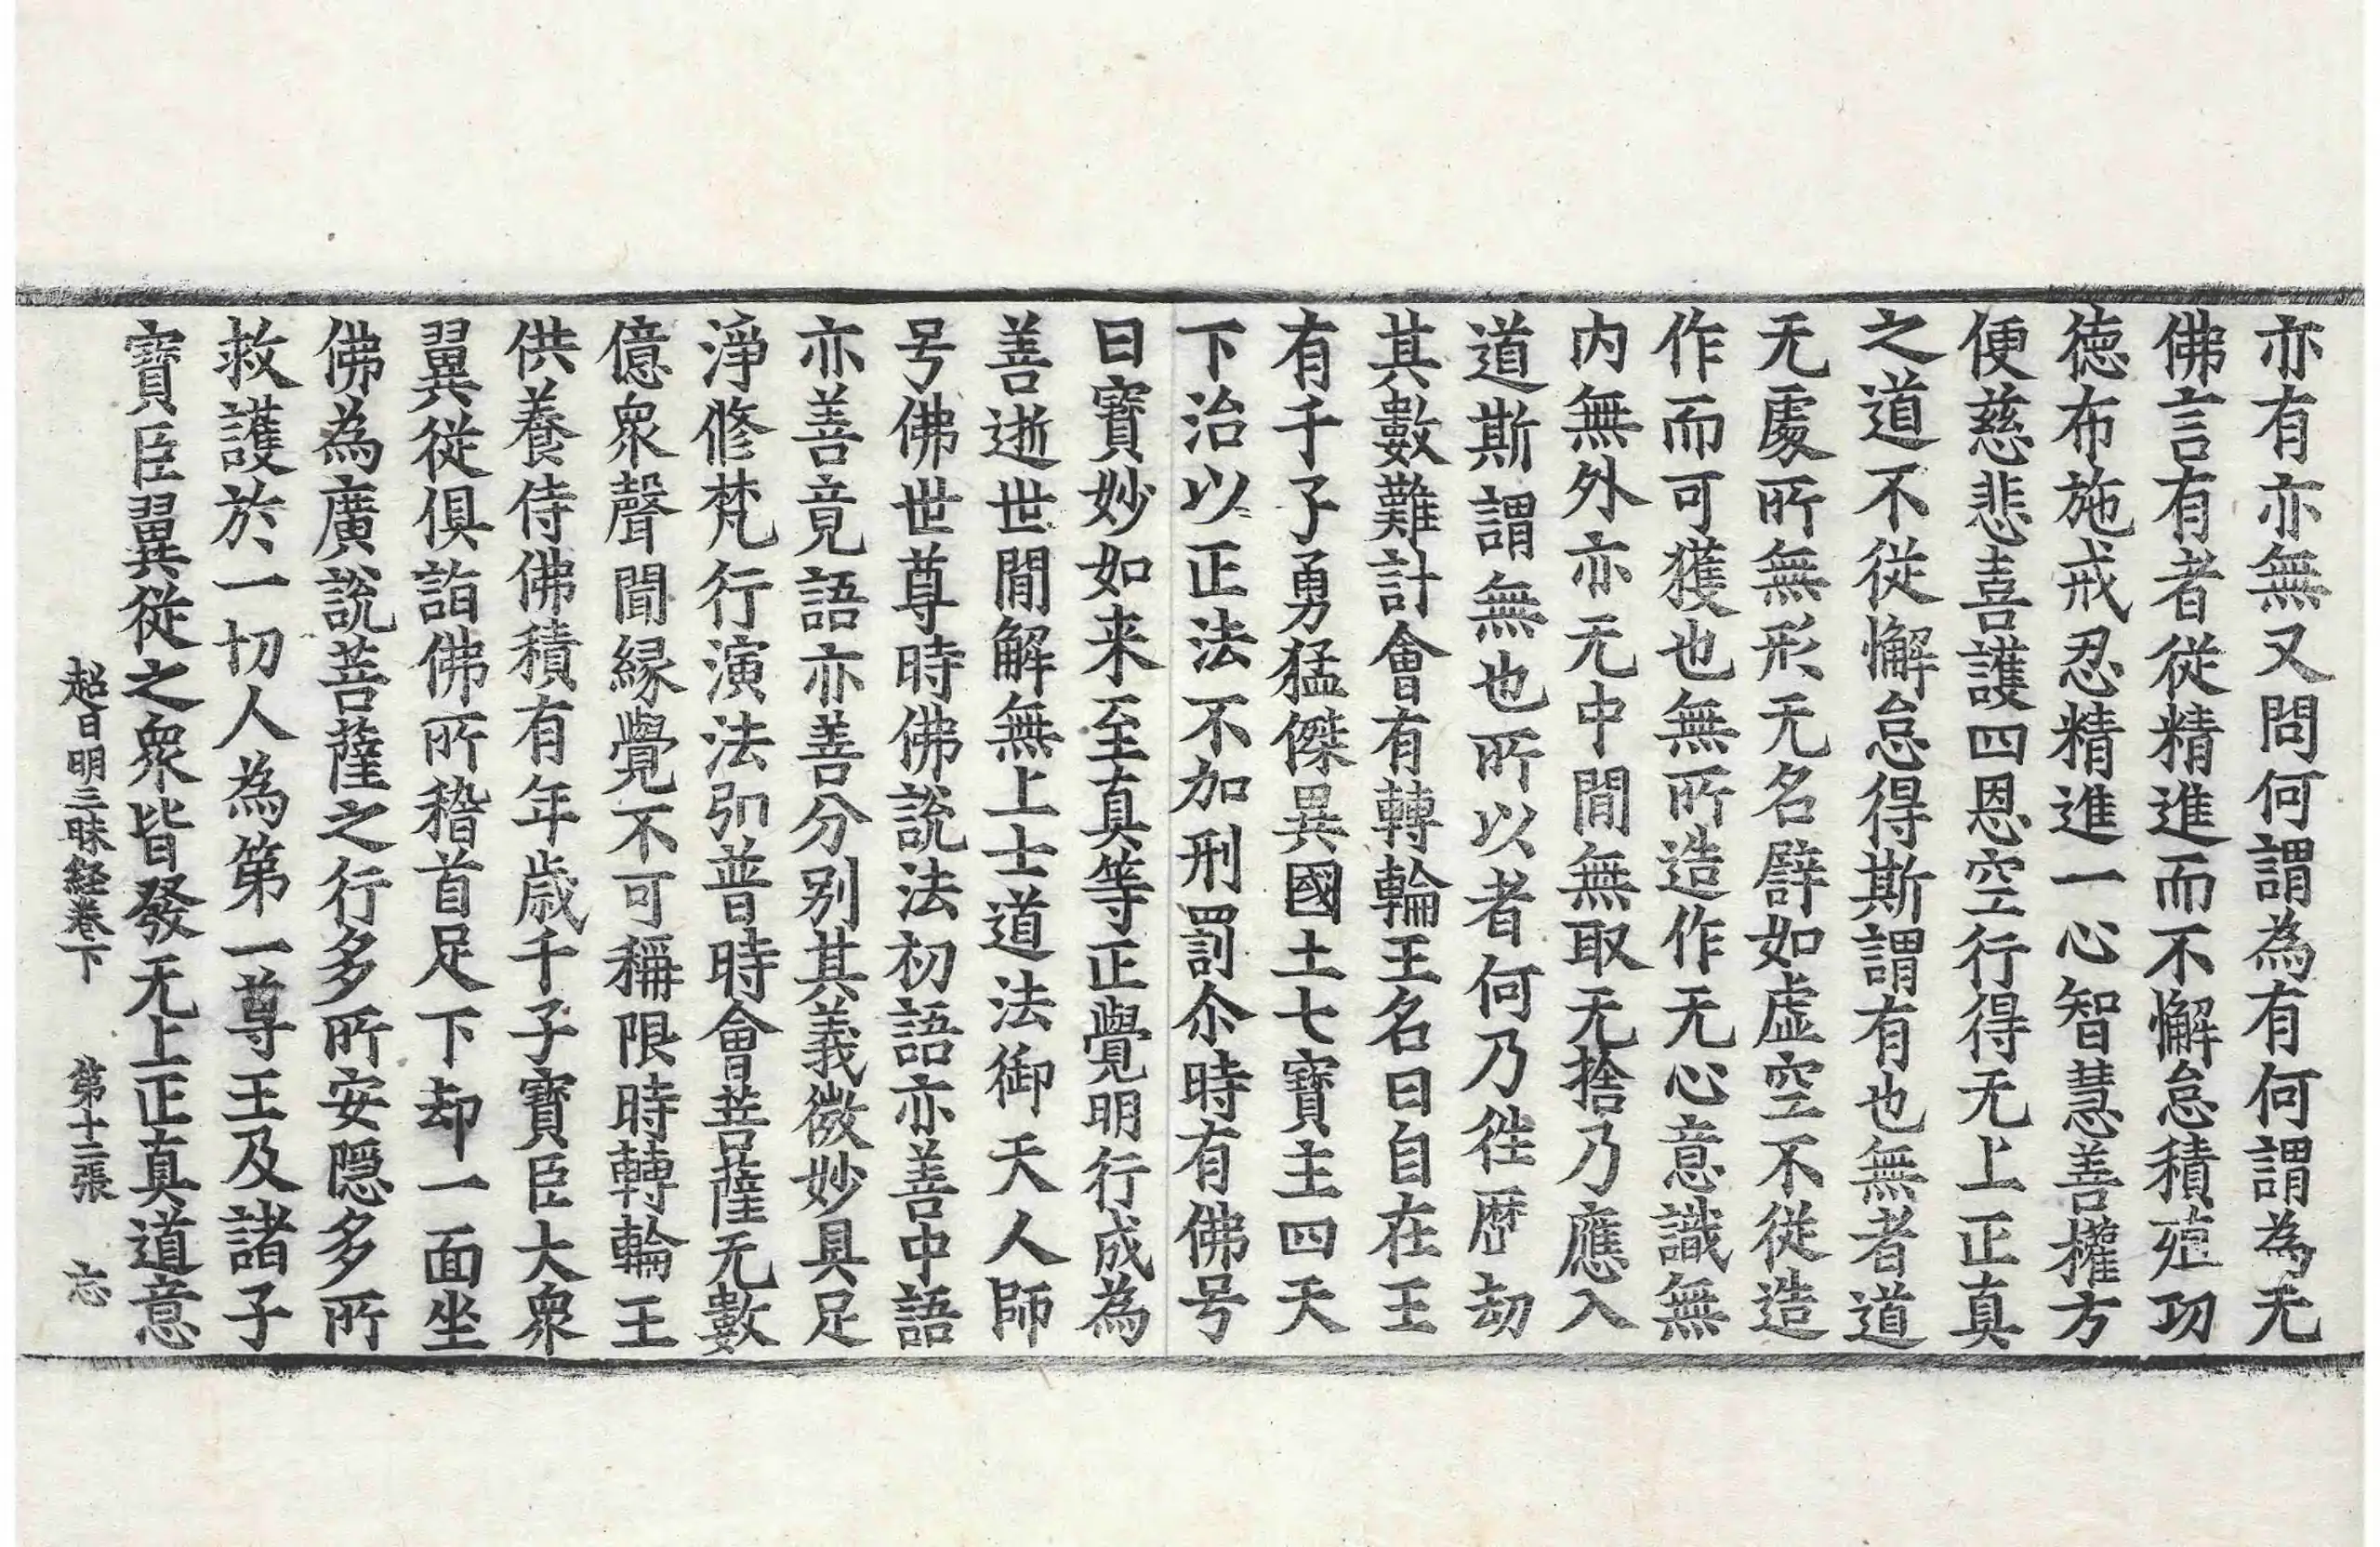 亦有亦無又問何謂為有何謂為无
佛言有者從精進而不懈怠積殖功
德布施戒忍精進一心智慧善權方
便慈悲喜護四恩空行得无上正真
之道不從懈怠得斯謂有也無者道
无處所無形无名譬如虛空不從造
作而可獲也無所造作无心意識無
内無外亦无中間無取无捨乃應入
道斯謂無也所以者何乃徃歷劫
其數難計會有轉輪王名曰自在王
有千子勇猛傑異國土七寶主四天
下治以正法不加刑罰尒時有佛号
曰寶妙如来至真等正覺明行成為
善逝世間解無上士道法御天人師
号佛世尊時佛說法初語亦善中語
亦善竟語亦善分別其義微妙具足
淨修梵行演法弘普時會菩薩无數
億衆聲聞緣覺不可稱限時轉輪王
供養侍佛積有年歲千子寶臣大衆
翼從俱詣佛所稽首足下却一面坐
佛為廣說菩薩之行多所安隱多所
救護於一切人為第一尊王及諸子
寶臣翼從之衆皆發无上正真道意
超日明三昧経卷下 第十二張 忘